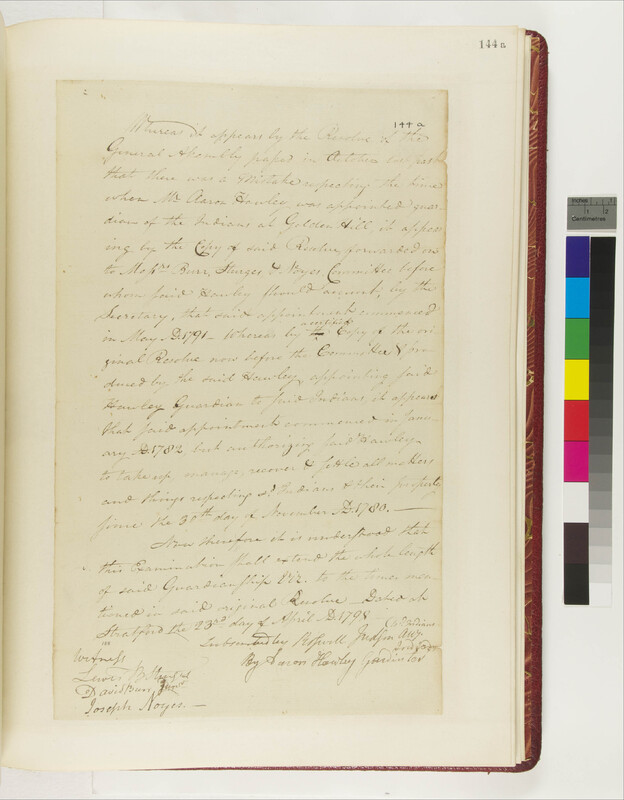 144a
144a
Whereas it appears by the Resolve of the
General Assembly passed in October last past
that there was a Mistake respecting the time
when Mr. Aaron Hawley, was appointed guar-
dian of the Indians at Golden Hill, it appear-
ing by the Copy of said Resolve forwarded on
to Messrs. Burr, Sturges & Noyes Committee before
whom said Hawley should account, by the
Secretary, that said appointment commenced
in May AD. 1791 – Whereas by a Copy of the ori-
ginal Resolve now before the Committee & pro-
duced by the said Hawley, appointing said
Hawley Guardian to said Indians, it appears
that said appointment commenced in Janu-
ary AD. 1782, but authorizing said Hawley
to take up manage, recover & settle all matters
and things respecting sd. Indians & their property
since the 30th day of November AD. 1780. —
Now therefore it is understood that
this Examination shall extend the whole length
of said Guardianship Viz. to the times men-
tioned in said original Resolve Dated at
Stratford the 23rd day of April AD. 1798
Indians
Judson
By Aaron Hawley
Witness
Lewis B
David Burr
Joseph Noyes. —
Inches
1
2
Centimetres